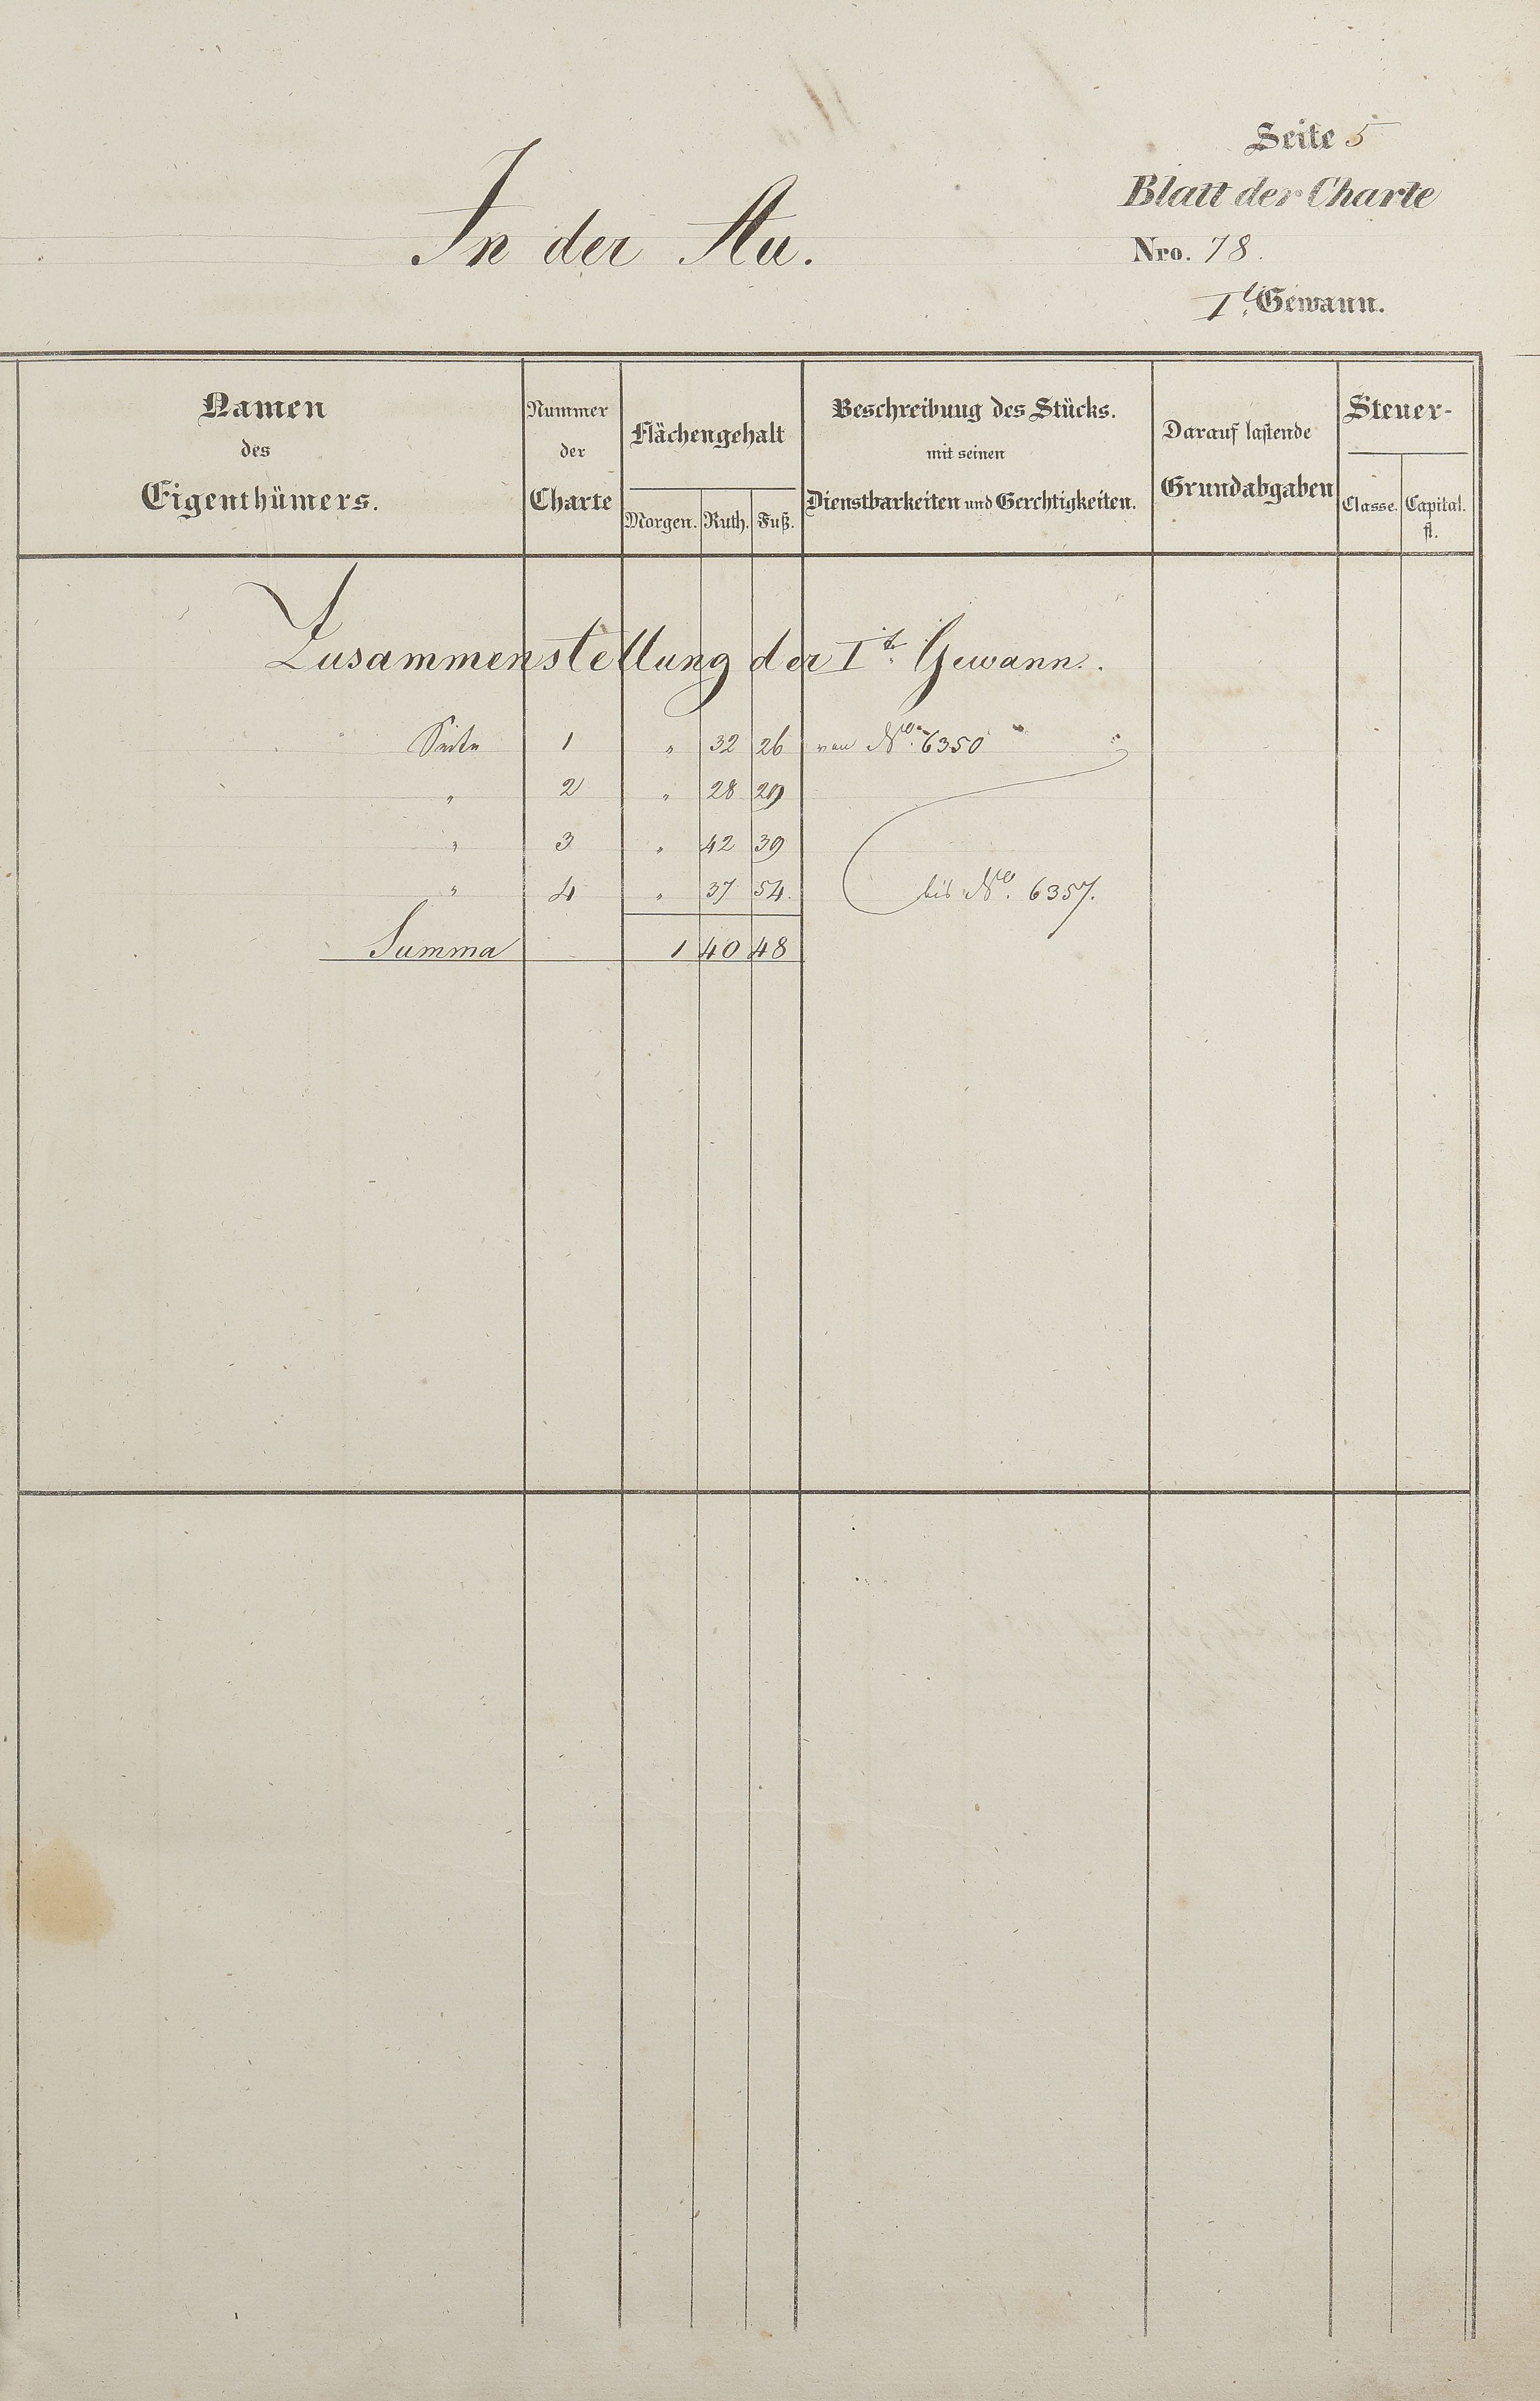 Seite 5
In der Au.
Blatt der Charte
Nro. 78.
Iᵗ. Gewann.
Namen
des
Eigenthümers.
Nummer
der
Charte
Flächengehalt
Morgen. Ruth. Fuß.
Beschreibung des Stücks.
mit seinen
Dienstbarkeiten und Gerchtigkeiten.
Darauf lastende
Grundabgaben
Steuer-
Classe. Capital.
fl.
Zusammenstellung der Iᵗ. Gewann.
Seite 1 " 32 26 von No. 6350
" 2 " 28 29
" 3 " 42 39
" 4 " 37 54. bis No. 6357.
Summa 1 40 48